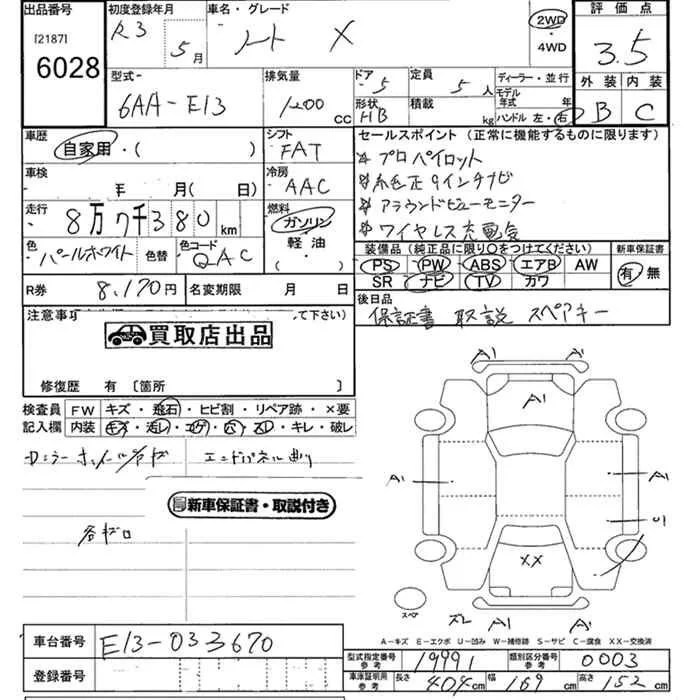 出品番号
[2187]
6028
初度登録年月
R3
5月
車名・グレード
ノート X
2WD・
4WD
評価点
3.5
外装 内装
B C
型式-
6AA-E13
排気量
1200 CC
ドア 5
形状 HB
定員 5人
積載 kg
ディーラー・並行
モデル年式 年
ハンドル 左・右
車歴
自家用・( )
シフト
FAT
車検
年 月(日)
冷房
AAC
走行
8万7千380km
燃料
ガソリン
軽油
( )
色
パールホワイト
色替
色コード
QAC
R券 8,170円
名変期限 月 日
セールスポイント (正常に機能するものに限ります)
* プロパイロット
* 純正9インチナビ
* アラウンドビューモニター
* ワイヤレス充電気
装備品(純正品に限り○をつけてください)
PS PW ABS エアB AW
SR ナビ TV カワ
新車保証書
有 無
後日品
保証書 取説 スペアキー
注意事項
て下さい)
買取店出品
修復歴 有〔箇所 〕
検査員 FW キズ・飛石・ヒビ割・リペア跡・×要
記入欄 内装 キズ・汚レ・コゲ・穴・スレ・キレ・破レ
エンドパネル曲り
新車保証書・取説付き
各ボロ
A1 A1
A1
A1 A1
U1
XX
スペア
スレ A1 A1
A-キズ E-エクボ U-凹み W-補修跡 S-サビ C-腐食 XX-交換済
車台番号 E13-033670
登録番号
型式指定番号
参考
19991
類別区分番号
参考
0003
車庫証明用
参考
長さ 404cm 幅 169cm 高さ 152cm